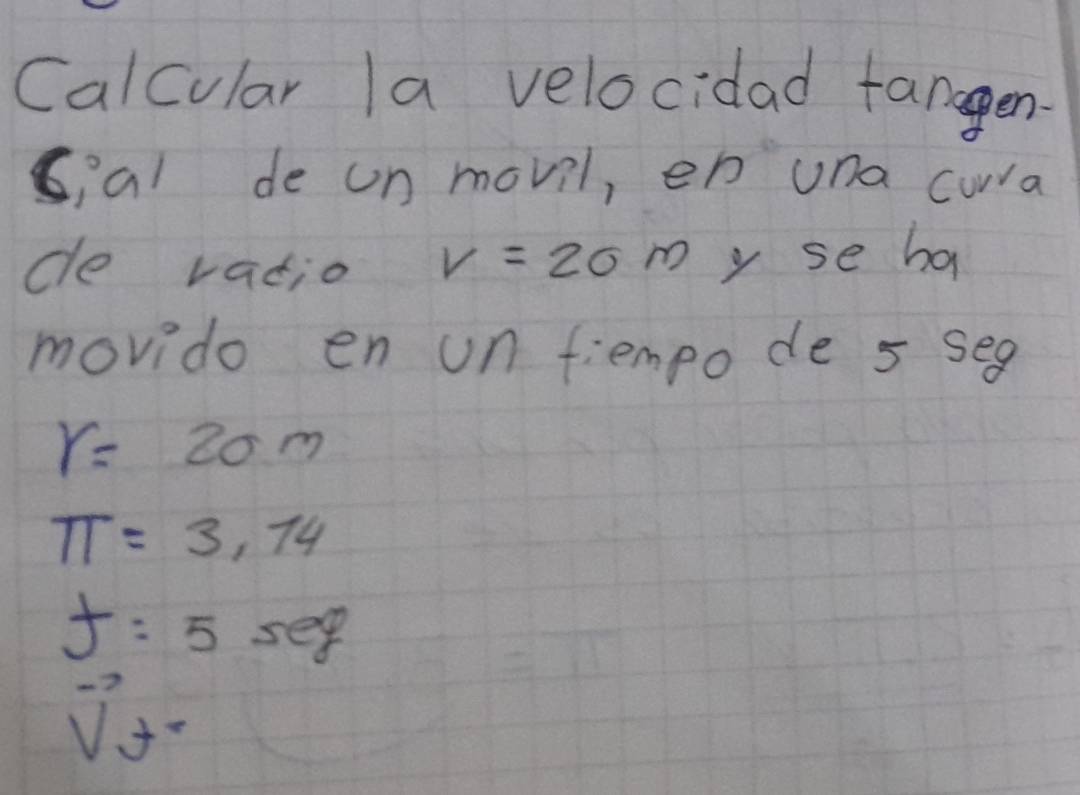 Calcular la velocidad tangen-
cial de un movil, en una curva
de radio r = 20 m y se ha
movido en un tiempo de 5 seg
r = 20 m
π = 3,14
t = 5 seg
V⃗t =